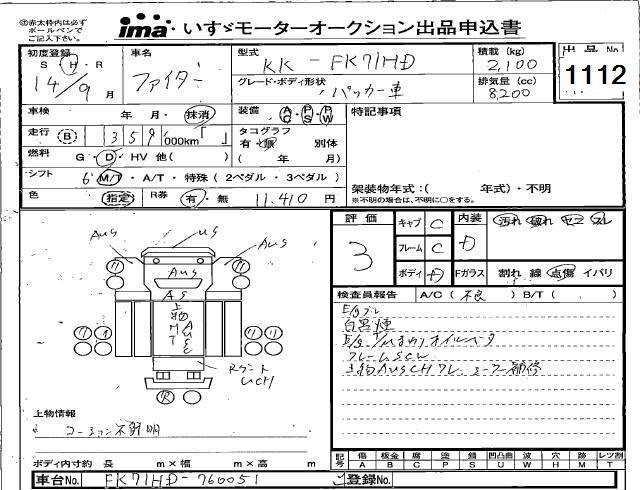 ㊟赤太枠内は必ず
ボールペンで
ご記入下さい。
ima・いすゞモーターオークション出品申込書
初度登録
S・H・R
14/9月
車名
ファイター
型式
KK-FK71HD
グレード・ボディ形状
パッカー車
積載(kg)
2,100
排気量(cc)
8,200
出品No
1112
車検 年・月・抹消
装備 AC・PS・PW
特記事項
走行 B 359,000km「 」
タコグラフ
有・無 別体
( 年 月)
燃料 G・D・HV 他( )
シフト 6 M/T・A/T・特殊(2ペダル・3ペダル)
色 指定 R券 有・無 11,410円
架装物年式:( 年式)・不明
※不明の場合は、不明に○をする。
評価
3
キャブ C
フレーム C
ボディ D
内装 D
汚れ 破れ セコ スレ
Fガラス 割れ 線 点傷 イバリ
検査員報告 A/C(不良) B/T( . )
E/gブレ
白黒煙
フレームSCW
AUS
US
AUS
AUS
AS
上物
UCH
R
上物情報
コーション不鮮明
ボディ内寸約 長 m×幅 m×高 m
記号 傷 板金 腐 塗 錆 凹凸曲 波 穴 跡 レツ割
A B C P S U W H M T
車台No. FK71HD-760051
ご登録No.